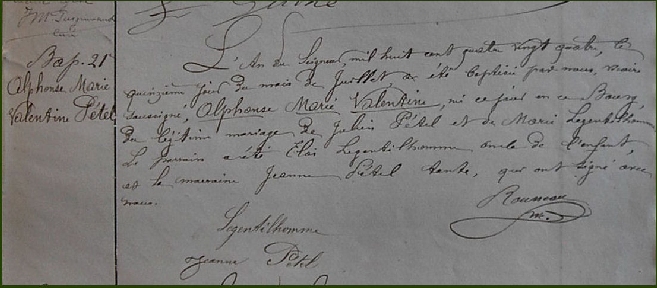 curé
Bap. 21
Alphonse Marie
Valentine Pétel
L'An du Seigneur, mil huit cent quatre vingt quatre, le
quinzième jour du mois de Juillet a été baptisé par nous, vicaire
soussigné, Alphonse Marie Valentine, né ce jour en ce Bourg,
du légitime mariage de Julien Pétel et de Marie Legentilhomme
Le parrain a été Eloi Legentilhomme oncle de l'enfant
et la marraine Jeanne Pétel tante, qui ont signé avec
nous.
Rousseau
Legentilhomme
Jeanne Pétel